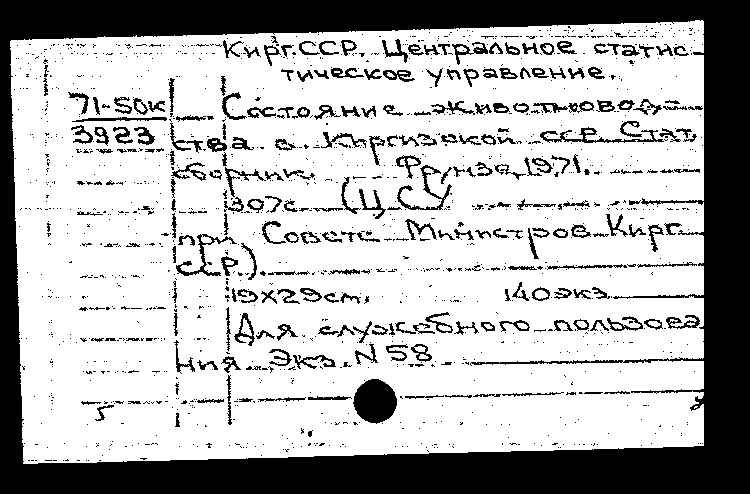 Кирг.ССР. Центральное статис-
тическое управление.
71-50к Состояние животновод-
3923 ства в Киргизской ССР. Стат.
сборник. Фрунзе, 1971.
307с (ЦСУ
при Совете Министров Кирг.
ССР).
19х29cm. 140экз
Для служебного пользова
ния Экз. N 58
5